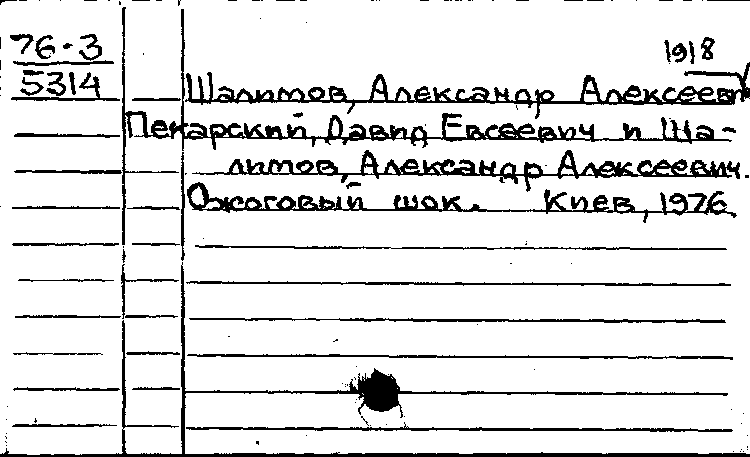 76-3
5314
1918
Шалимов, Александр Алексеевич
Пекарский, Давид Евсеевич и Ша-
лимов, Александр Алексеевич.
Ожоговый шок. Киев, 1976.